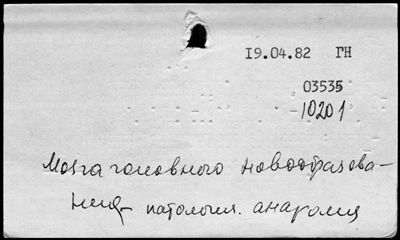 19.04.82 ГН
03535
10201
Мозга головного новообразова-
ния - патология. анатомия